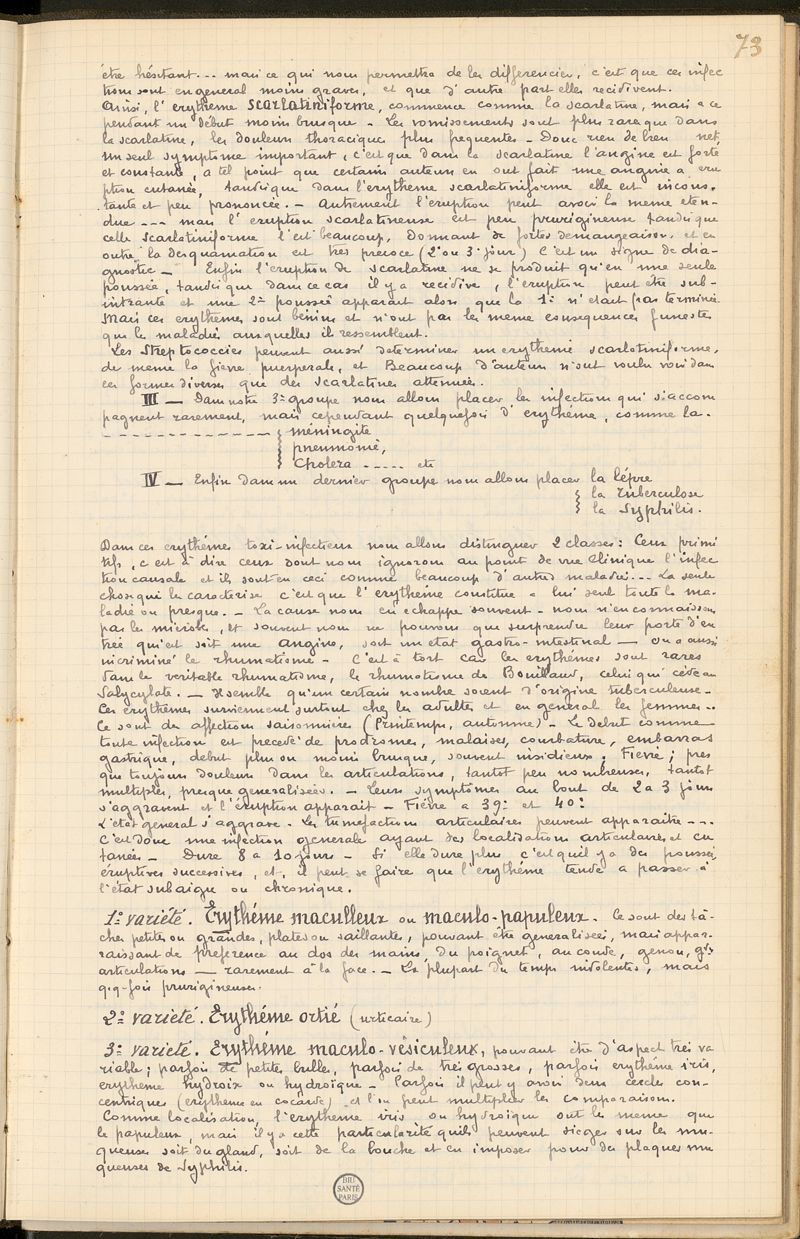 73
être hésitant... mais ce qui nous permettra de les differencier, c'est que ces infec
tions sont en general moins graves, et que d'autre part elles recidivent.
Ainsi, l'erythème scarlatiniforme, commence comme la scarlatine, mais a ce
pendant un début moins brusque - Les vomissements sont plus rares que dans
la scarlatine, les douleurs thoraciques plus frequentes - Donc rien de bien net,
un seul symptome important, c'est que dans la scarlatine l'angine est forte
et constante, a tel point que certains auteurs en ont fait une angine a eru
ption cutanée, tandis que dans l'erythème scarlatiniforme elle est incons.
tante et peu prononcée. - Autrement l'eruption peut avoir la meme eten-
due --- mais l'eruption scarlatineuse est peu prurigineuse tandis que
celle scarlatiniforme l'est beaucoup, Donnant de fortes demangeaisons, et en
outre la desquamation est tres precoce (2e ou 3e jour) C'est un signe de dia-
gnostic - Enfin l'eruption de scarlatine ne se produit qu'en une seule
poussée, tandis que dans ce cas il y a recidive, l'eruption peut être sub-
intrante et une 2e poussée apparait alors que la 1e n'etait pas terminée
Mais ces erythèmes sont bénins et n'ont pas les meme consequences funestes
que les maladies auxquelles ils ressemblent.
Les Streptococcies peuvent aussi determiner un erythème scarlatiniforme,
de meme la fièvre puerperale, et Beaucoup d'auteurs n'ont voulu voir dans
ces formes diverses que des scarlatines attenuées.
III - Dans notre 3e groupe nous allons placer les infections qui s'accom
pagnent rarement, mais cependant quelquefois d'erythème, comme la.
-------------- { méningite
{ pneumonie,
{ Cholera ----- etc
IV - Enfin dans un dernier groupe nous allons placer la lèpre
{ la Tuberculose
{ la Syphilis.
Dans ces erythémes toxi-infectieux nous allons distinguer 2 classes: Ceux primi
tifs, c'est à dire ceux dont nous ignorons au point de vue Clinique l'infec
tion causale et ils sont en ceci comme beaucoup d'autres maladies... La seule
chose qui les caracterise c'est que l'erythème constitue a lui seul toute la ma-
ladie ou presque. - La cause nous en echappe souvent - nous n'en connaissons
pas les microbes, et souvent nous ne pouvons que surprendre leur porte d'en
trée qu'est soit une angine, soit un etat gastro-intestinal - on a aussi
incriminé le rhumatisme - C'est à tort car les erythémes sont rares
dans le veritable rhumatisme, le rhumatisme de Bouillaud, celui qui cède au
Salycylate. - Il semble qu'un certain nombre soient d'origine tuberculeuse -
Ces erythèmes surviennent surtout chez les adultes et en general les femmes..
Ce sont des affections saisonnières (Printemps, automne) - Le debut comme
toute infection est precedé de prodromes, malaises, courbature, embarras
gastrique, debut plus ou moins brusque, souvent insidieux. Fièvre; pres
que toujours douleurs dans les articulations, tantot peu nombreuses, tantot
multiples, presque generalisées. - Leurs symptômes au bout de 2 a 3 jours
s'aggravent et l'éruption apparait - Fièvre a 39° et 40°
L'état general s'aggrave - Les tumefactions articulaires peuvent apparaitre ---
C'est donc une infection generale ayant des localisations articulaires et cu
tanées - Dure 8 a 10 jours - Si elle dure plus c'est quil y a des poussées
éruptives successives, et, il peut se faire que l'erythème tende a passer à
l'état subaigu ou chronique.
1e variété. Erythéme maculleux ou maculo-papuleux. Ce sont des tâ-
ches petites ou grandes, plates ou saillantes, pouvant être generalisées, mais appar-
raissant de preference au dos des mains, du poignet, au coude, genou, gdes
articulations - rarement à la face. - La plupart du temps indolentes, mais
q.q-fois prurigineuses.
2e varieté. Erythéme ortié (urticaire)
3e varieté. Erythéme maculo-vésiculeux, pouvant être d'aspect très va
riable; parfois de petites bulles, parfois de très grosses, parfois erythème iris,
erythème hydroix ou hydroïque - Parfois il peut y avoir deux cercles con-
centriques (erythème en cocarde) et l'on peut multiplier les comparaisons.
Comme localisation, l'erythème iris ou hydroique ont les meme que
le papuleux, mais il y a cette particularité quils peuvent sieger sur les mu-
queuses soit du gland, soit de la bouche et en imposer pour des plaques mu
queuses de Syphilis.
BIU
SANTÉ
PARIS